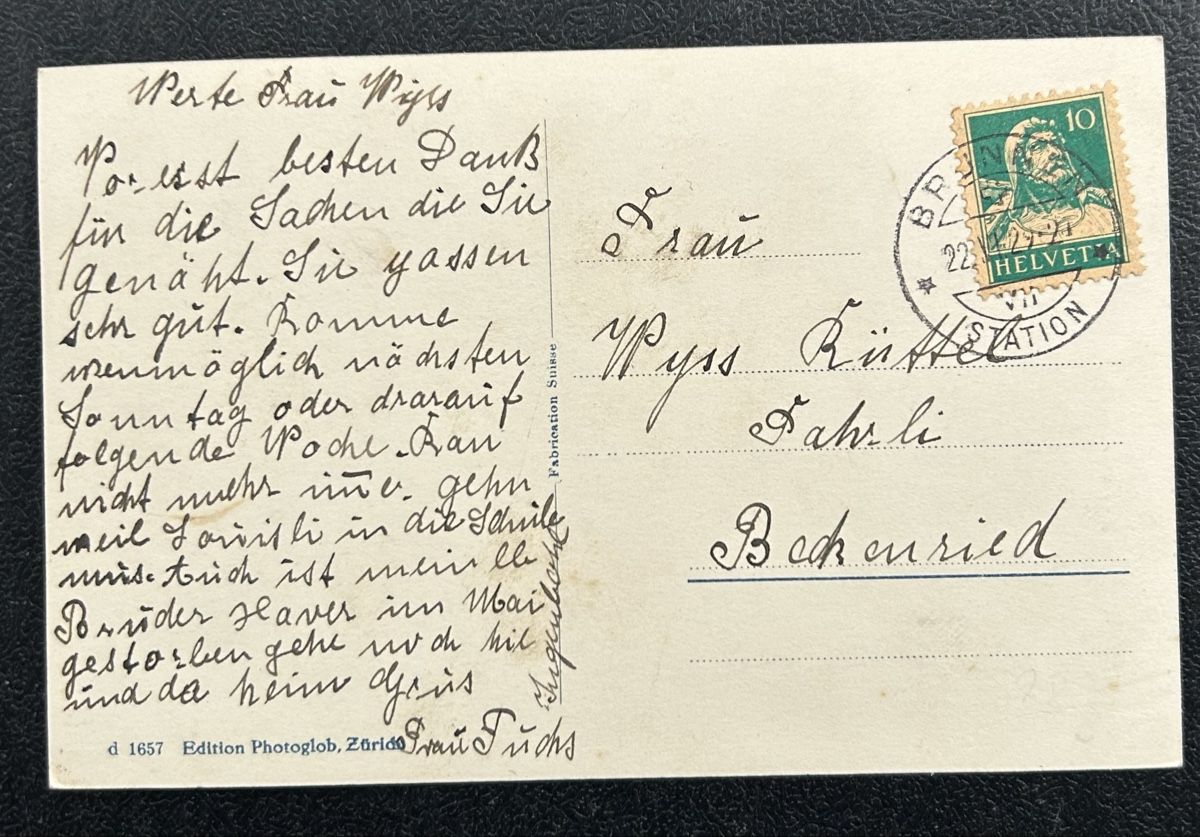 Werte Frau Wyss
Vor esst besten Dank
für die Sachen die Sie
genäht. Sie passen
sehr gut. Komme
wenmöglich nächsten
Sonntag oder drarauf
folgende Woche. Kan
nicht mehr im̄er gehn
weil Louisli in die Schule
mus. Auch ist mein lb
Bruder Xaver im Mai
gestorben gehe noch hie
und da heim Grüs
Frau Fuchs
Ingenbohl
d 1657 Edition Photoglob, Zürich
Fabrication Suisse
10
HELVETIA
BRUNNEN
22.
VII
STATION
Frau
Wyss Rüttel
Fahrli
Beckenried